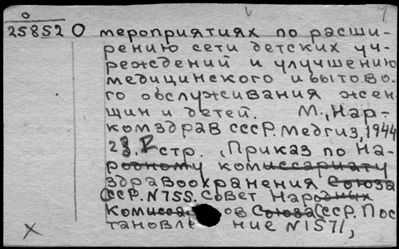 25852 О мероприятиях по расши-
рению сети детских уч-
реждений и улучшению
медицинского и бытово-
го обслуживания жен
щин и детей. М., Нар-
комздрав СССР. Медгиз, 1944
стр. (Приказ по На-
родному комиссариату
здравоохранения Союза
ССР. N755. Совет Народных
Союза ССР. Пос
тановле ние N1571,